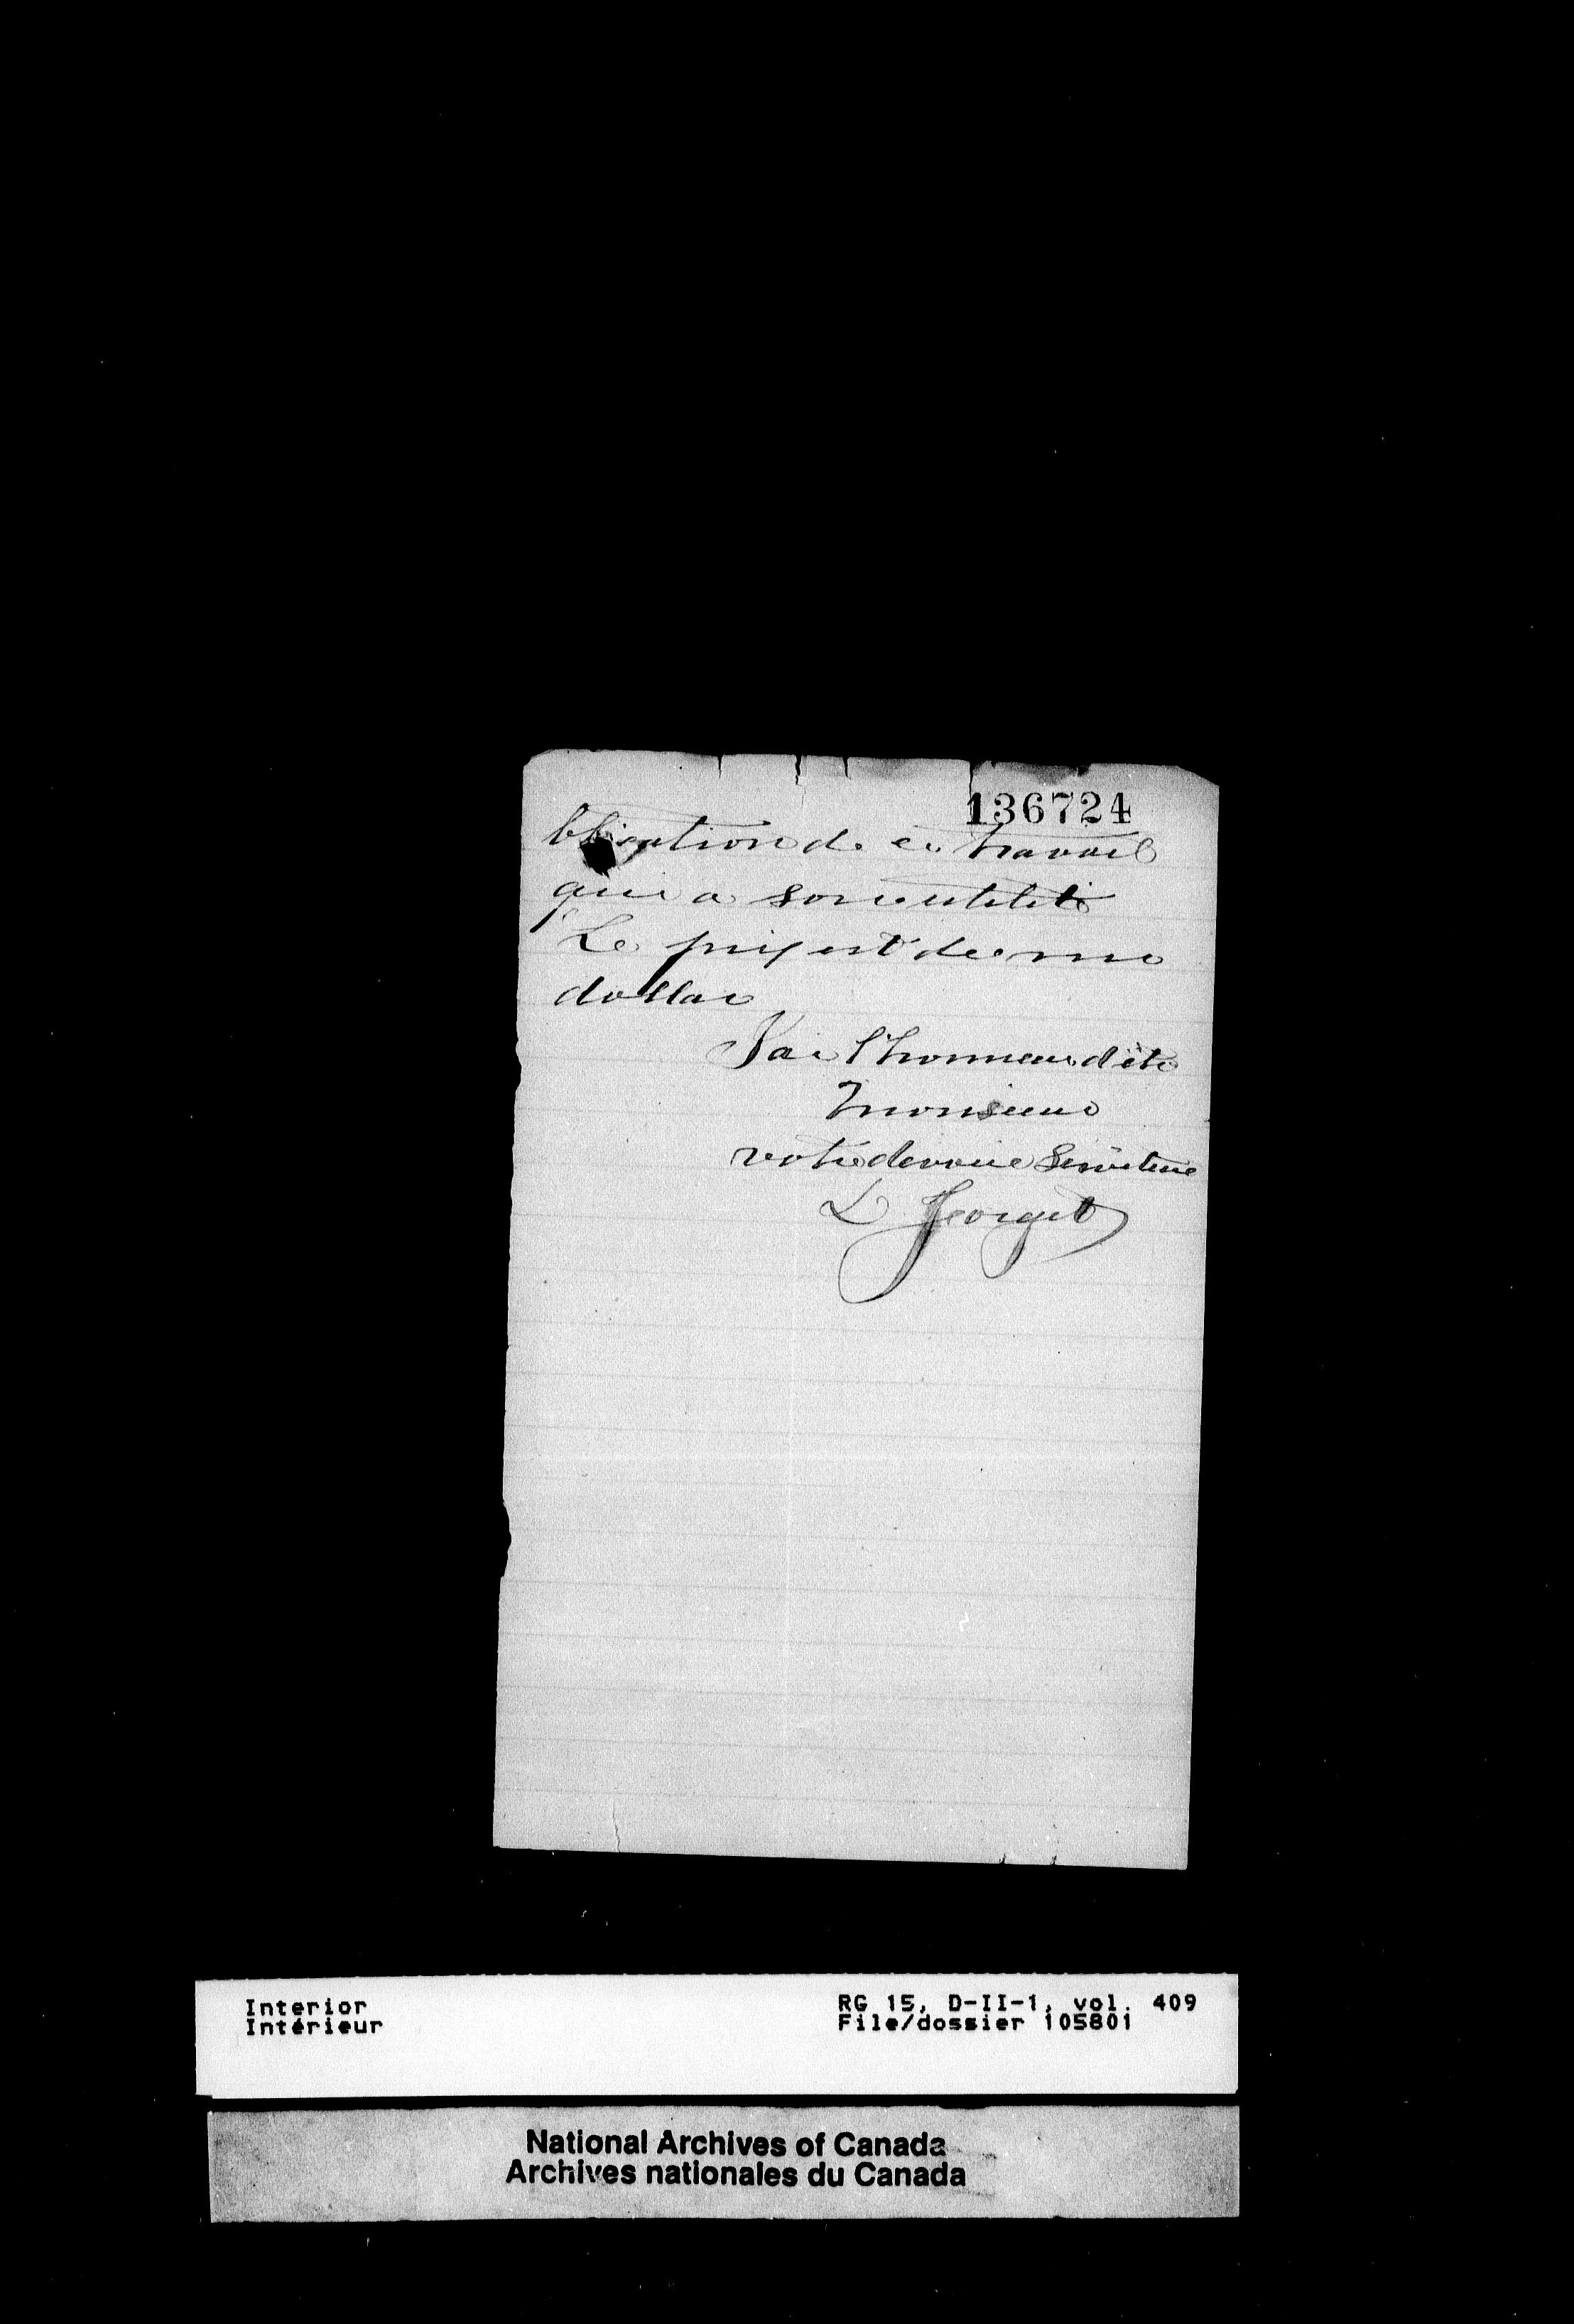 136724
blication de ce travail
qui a son utilité
Le prix est de une
dollar
J'ai l'honneur d'être
Monsieur
votre devoué Serviteur
L Forget
Interior
Intérieur
RG 15, D-II-1, vol. 409
File/dossier 105801
National Archives of Canada
Archives nationales du Canada